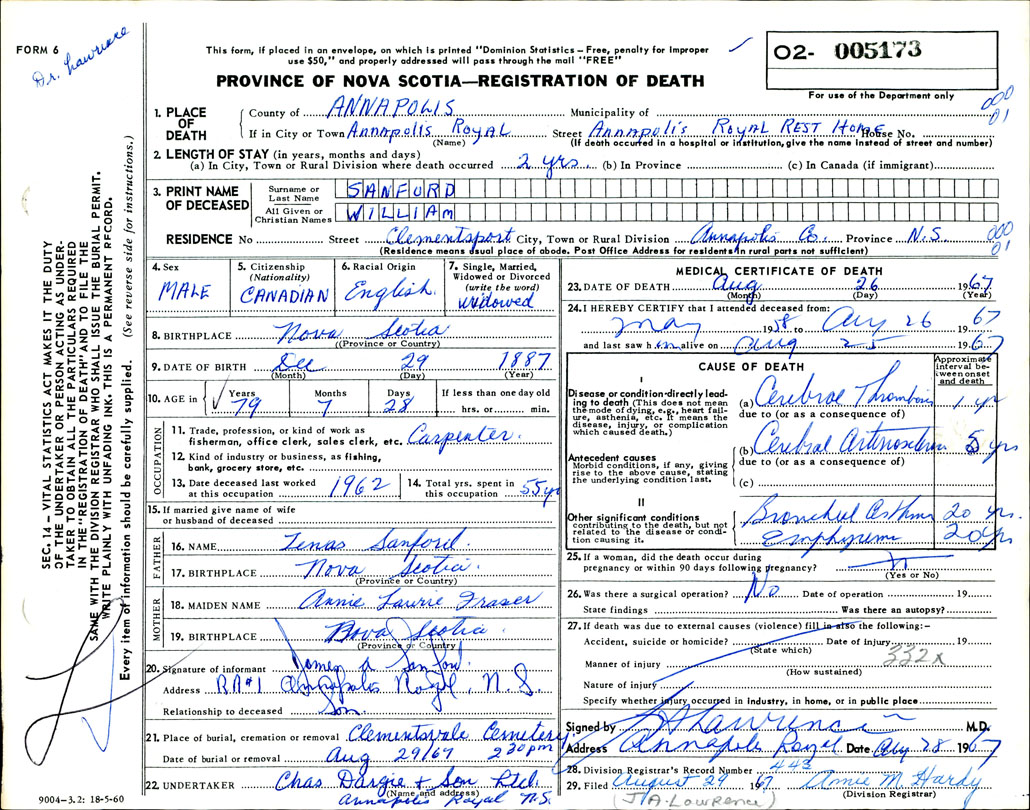 FORM 6
Dr. Lawrence
This form, if placed in an envelope, on which is printed "Dominion Statistics – Free, penalty for improper
use $50," and properly addressed will pass through the mail "FREE"
O2- 005173
PROVINCE OF NOVA SCOTIA—REGISTRATION OF DEATH
For use of the Department only
000
01
1. PLACE OF DEATH
County of ANNAPOLIS Municipality of
If in City or Town Annapolis Royal Street Annapolis Royal Rest Home House No.
(Name) (If death occurred in a hospital or institution, give the name instead of street and number)
2. LENGTH OF STAY (in years, months and days)
(a) In City, Town or Rural Division where death occurred 2 yrs. (b) In Province (c) In Canada (if immigrant)
3. PRINT NAME OF DECEASED
Surname or Last Name SANFORD
All Given or Christian Names WILLIAM
RESIDENCE No Street Clementsport City, Town or Rural Division Annapolis Co. Province N.S.
000
01
(Residence means usual place of abode. Post Office Address for residents in rural parts not sufficient)
4. Sex MALE
5. Citizenship (Nationality) CANADIAN
6. Racial Origin English
7. Single, Married, Widowed or Divorced (write the word) widowed
8. BIRTHPLACE Nova Scotia
(Province or Country)
9. DATE OF BIRTH Dec 29 1887
(Month) (Day) (Year)
10. AGE in Years Months Days If less than one day old
79 7 28 hrs. or min.
OCCUPATION
11. Trade, profession, or kind of work as
fisherman, office clerk, sales clerk, etc. Carpenter.
12. Kind of industry or business, as fishing,
bank, grocery store, etc.
13. Date deceased last worked at this occupation 1962
14. Total yrs. spent in this occupation 55 yr
15. If married give name of wife
or husband of deceased
FATHER
16. NAME Sanford.
17. BIRTHPLACE Nova Scotia.
(Province or Country)
MOTHER
18. MAIDEN NAME Annie Laurie Fraser
19. BIRTHPLACE Nova Scotia.
(Province or Country)
20. Signature of informant A Sanford.
Address R.R.#1 Annapolis Royal, N.S.
Relationship to deceased Son.
21. Place of burial, cremation or removal Clementsvale Cemetery
Date of burial or removal Aug 29/67 2 30 pm
22. UNDERTAKER Chas Dargie + Son Ltd.
(Name and address)
Annapolis Royal N.S.
9004–3.2: 18-5-60
MEDICAL CERTIFICATE OF DEATH
23. DATE OF DEATH Aug 26 1967
(Month) (Day) (Year)
24. I HEREBY CERTIFY that I attended deceased from:
May 1958 to Aug 26 1967
and last saw him alive on Aug 25 1967
CAUSE OF DEATH
Approximate interval between onset and death
I
Disease or condition directly leading to death (This does not mean the mode of dying, e.g., heart failure, asthenia, etc. It means the disease, injury, or complication which caused death.)
(a) Cerebral Thrombosis 1 yr
due to (or as a consequence of)
Antecedent causes
Morbid conditions, if any, giving rise to the above cause, stating the underlying condition last.
(b) Cerebral 5 yrs
due to (or as a consequence of)
(c)
II
Other significant conditions contributing to the death, but not related to the disease or condition causing it.
Bronchial Asthma 20 yrs.
Emphysema 20 yrs
25. If a woman, did the death occur during
pregnancy or within 90 days following pregnancy?
(Yes or No)
26. Was there a surgical operation? No Date of operation 19
State findings Was there an autopsy?
27. If death was due to external causes (violence) fill in also the following:–
Accident, suicide or homicide? Date of injury 19
(State which)
332x
Manner of injury
(How sustained)
Nature of injury
Specify whether injury occurred in Industry, in home, or in public place
Signed by Lawrence M.D.
Address Annapolis Royal Date Aug 28 1967
28. Division Registrar's Record Number 443
29. Filed August 29 1967 Annie M. Hardy
(J. A. Lawrence) (Division Registrar)
SEC. 14 – VITAL STATISTICS ACT MAKES IT THE DUTY
OF THE UNDERTAKER OR PERSON ACTING AS UNDER-
TAKER TO OBTAIN ALL THE PARTICULARS REQUIRED
IN THE "REGISTRATION OF DEATH" AND TO FILE THE
SAME WITH THE DIVISION REGISTRAR WHO SHALL ISSUE THE BURIAL PERMIT.
WRITE PLAINLY WITH UNFADING INK. THIS IS A PERMANENT RECORD.
Every item of information should be carefully supplied. (See reverse side for instructions.)